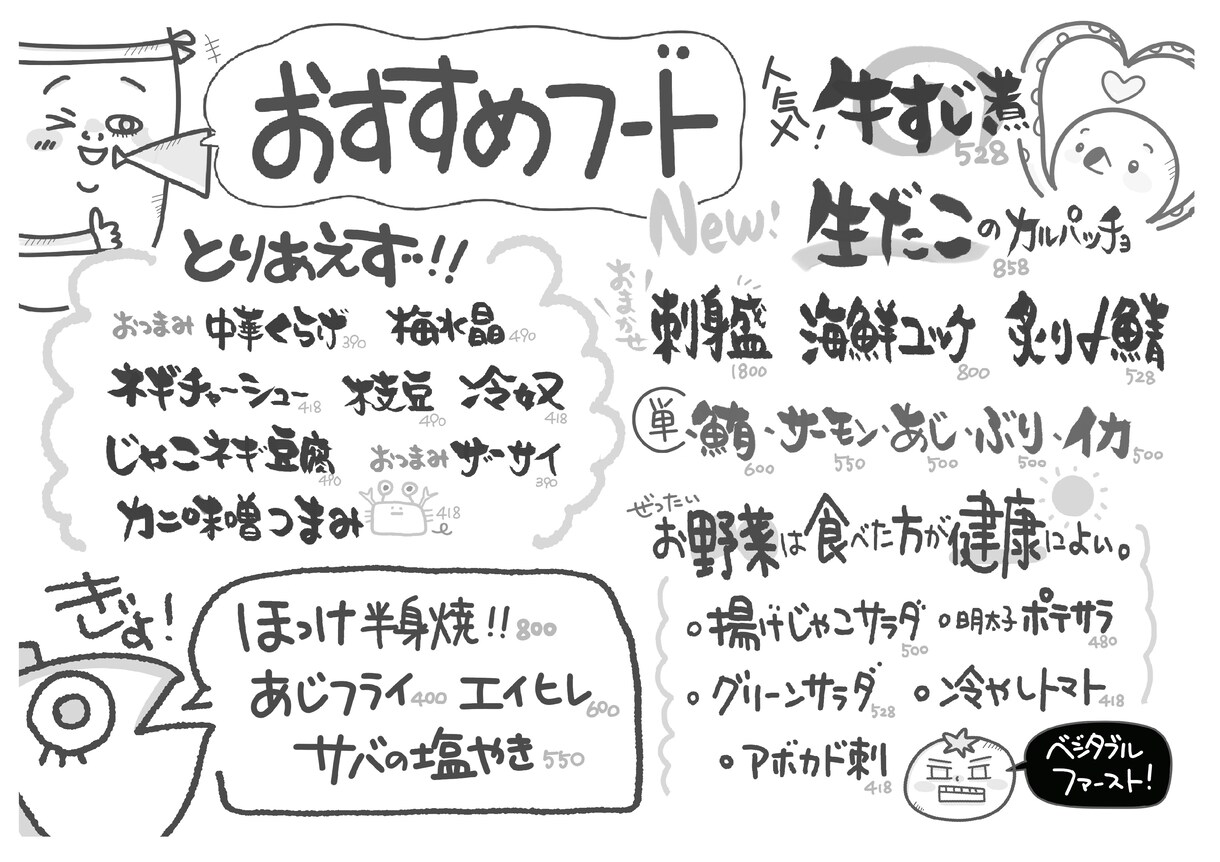 おすすめフード
とりあえず!!
おつまみ中華くらげ390 梅水晶490
ネギチャーシュー418 枝豆490 冷奴418
じゃこネギ豆腐490 おつまみザーサイ390
カニ味噌つまみ418
ぎょ!
ほっけ半身焼!!800
あじフライ400 エイヒレ600
サバの塩やき550
人気メ!
牛すじ煮528
New!
生だこのカルパッチョ858
おまかせ
刺身盛1800 海鮮ユッケ800 炙り〆鯖528
単、鮪600、サーモン550、あじ500、ぶり500、イカ500
ぜったい
お野菜は食べた方が健康によい。
○揚げじゃこサラダ500 ○明太子ポテサラ480
○グリーンサラダ528 ○冷やしトマト418
○アボカド刺418
ベジタブル
ファースト!